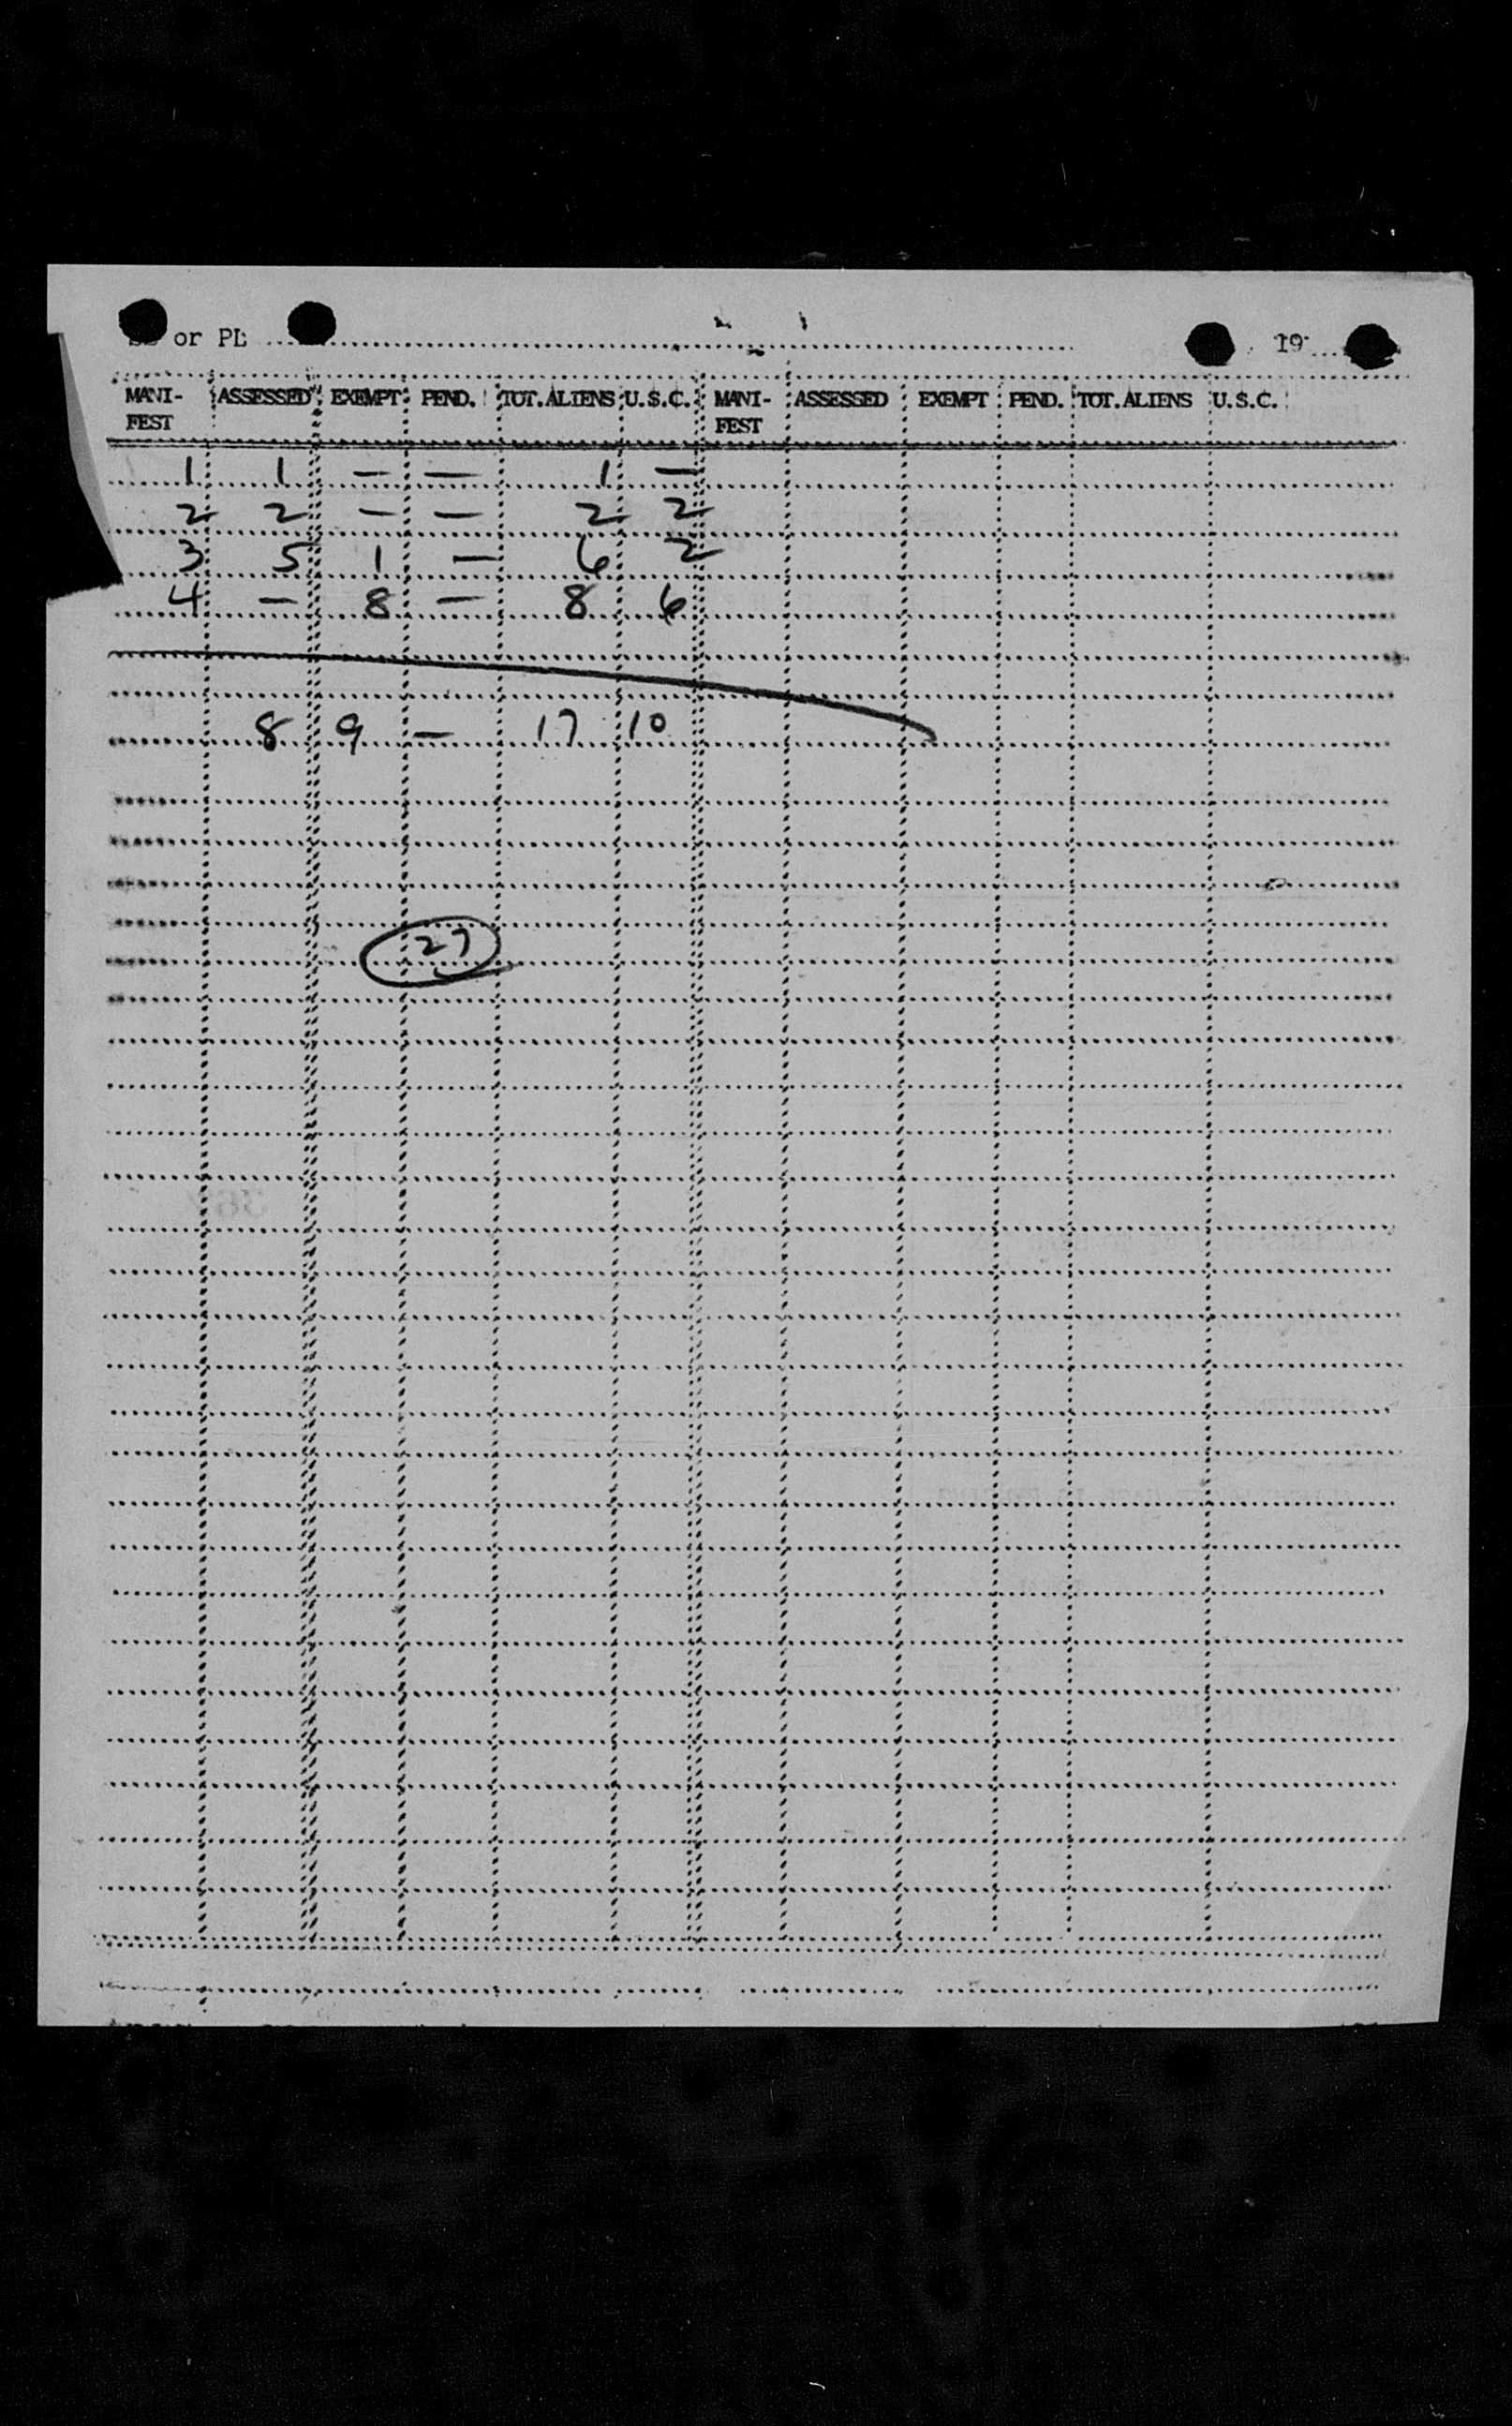 or PL 19
MANI-FEST ASSESSED EXEMPT PEND. TOT. ALIENS U.S.C. MANI-FEST ASSESSED EXEMPT PEND. TOT. ALIENS U.S.C.
1 1 — — 1 —
2 2 — — 2 2
3 5 1 — 6 2
4 — 8 — 8 6
8 9 — 17 10
27